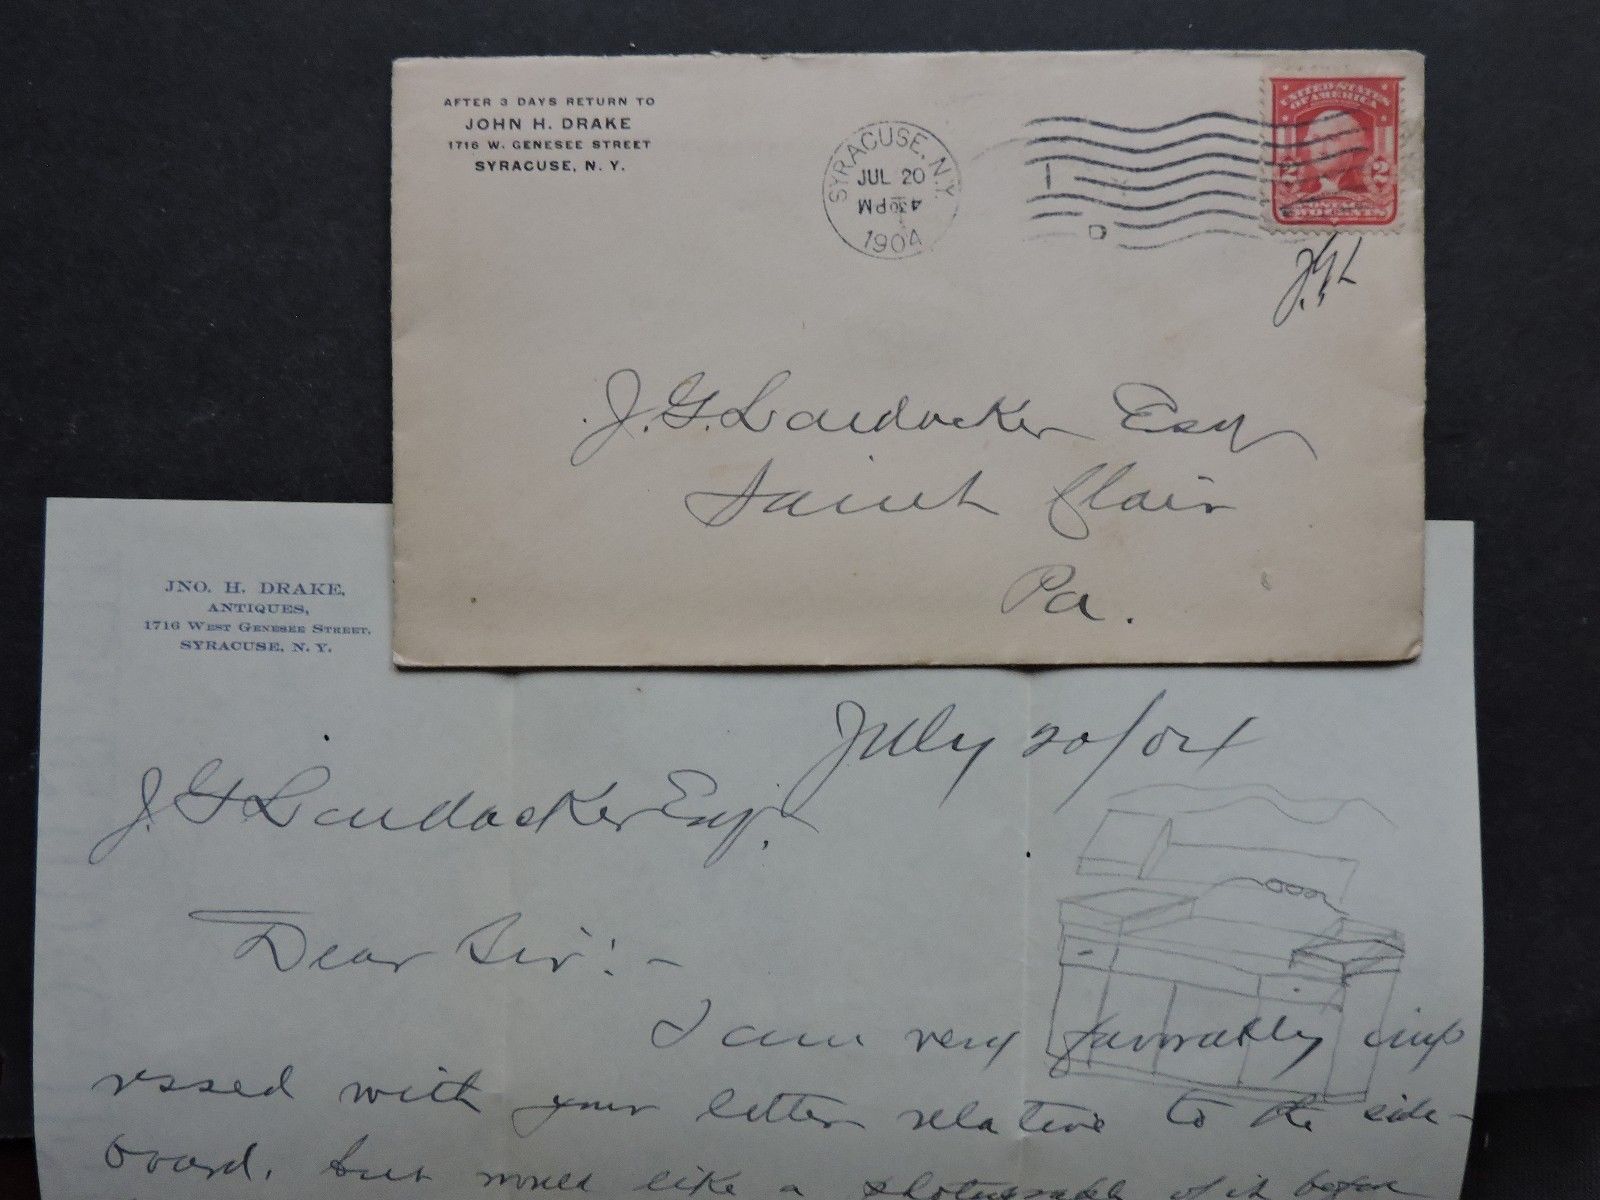 AFTER 3 DAYS RETURN TO
JOHN H. DRAKE
1716 W. GENESEE STREET
SYRACUSE, N. Y.
SYRACUSE, N.Y.
JUL 20
4 30 PM
1904
1
D
UNITED STATES
OF AMERICA
2 2
J.G.L
J. G. Lardacker Esq
Saint Clair
Pa.
JNO. H. DRAKE,
ANTIQUES,
1716 WEST GENESEE STREET,
SYRACUSE, N. Y.
July 20/04
J. G Laudacker Esq.
Dear Sir! -
I am very favorably imp
ressed with your letter relative to the side-
board, but would like a photograph of it before